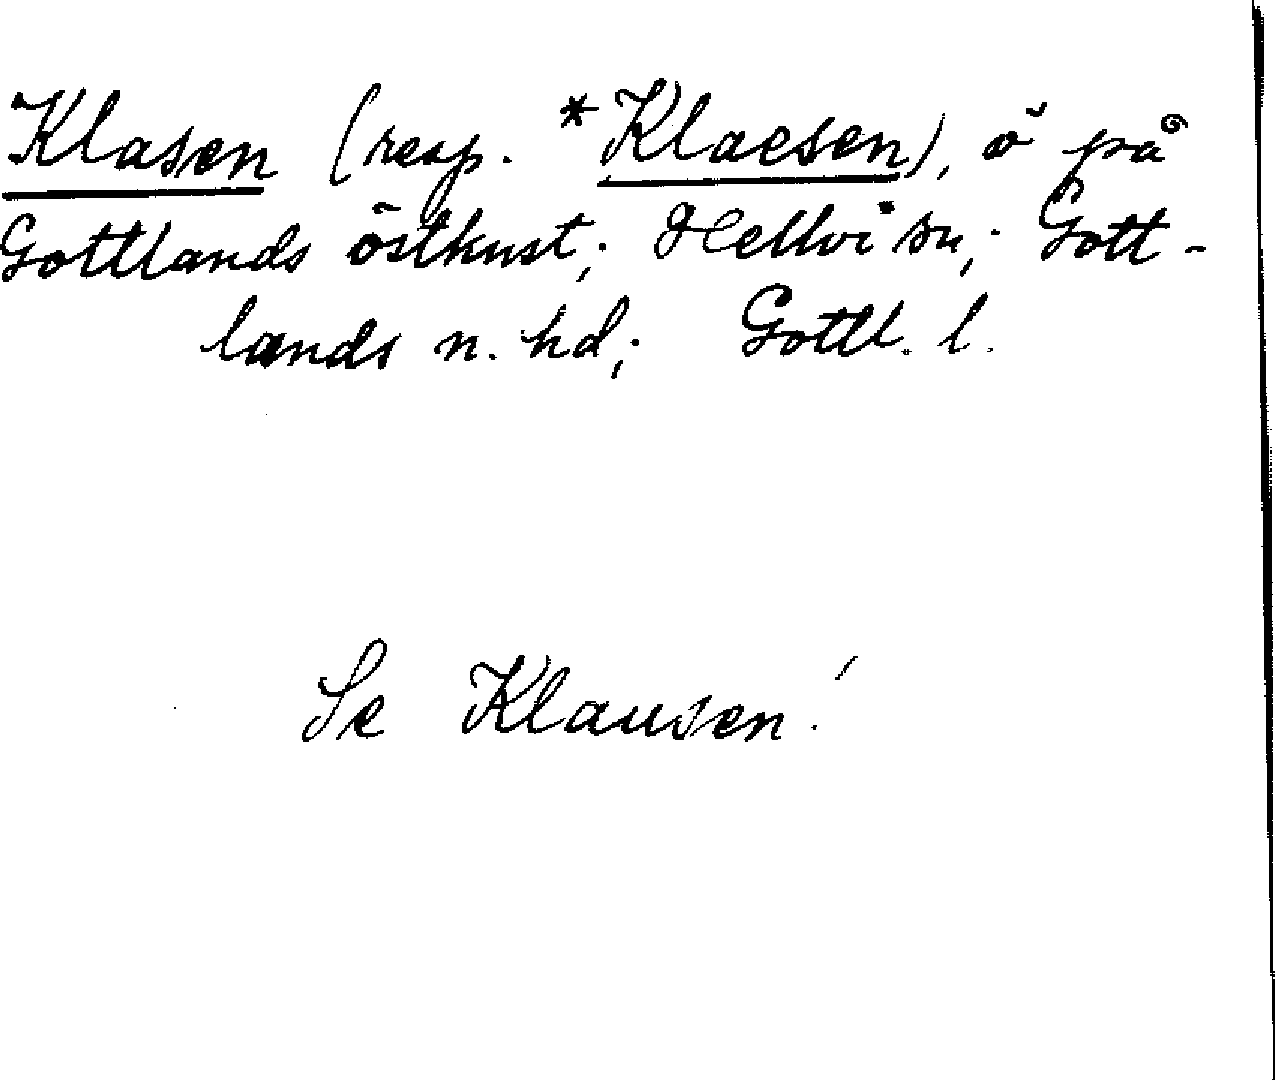 Klasen (resp. *Klaesen), ö på
Gottlands östkust; Hellvi sn; Gott-
lands n. hd; Gottl. l.
Se Klausen!